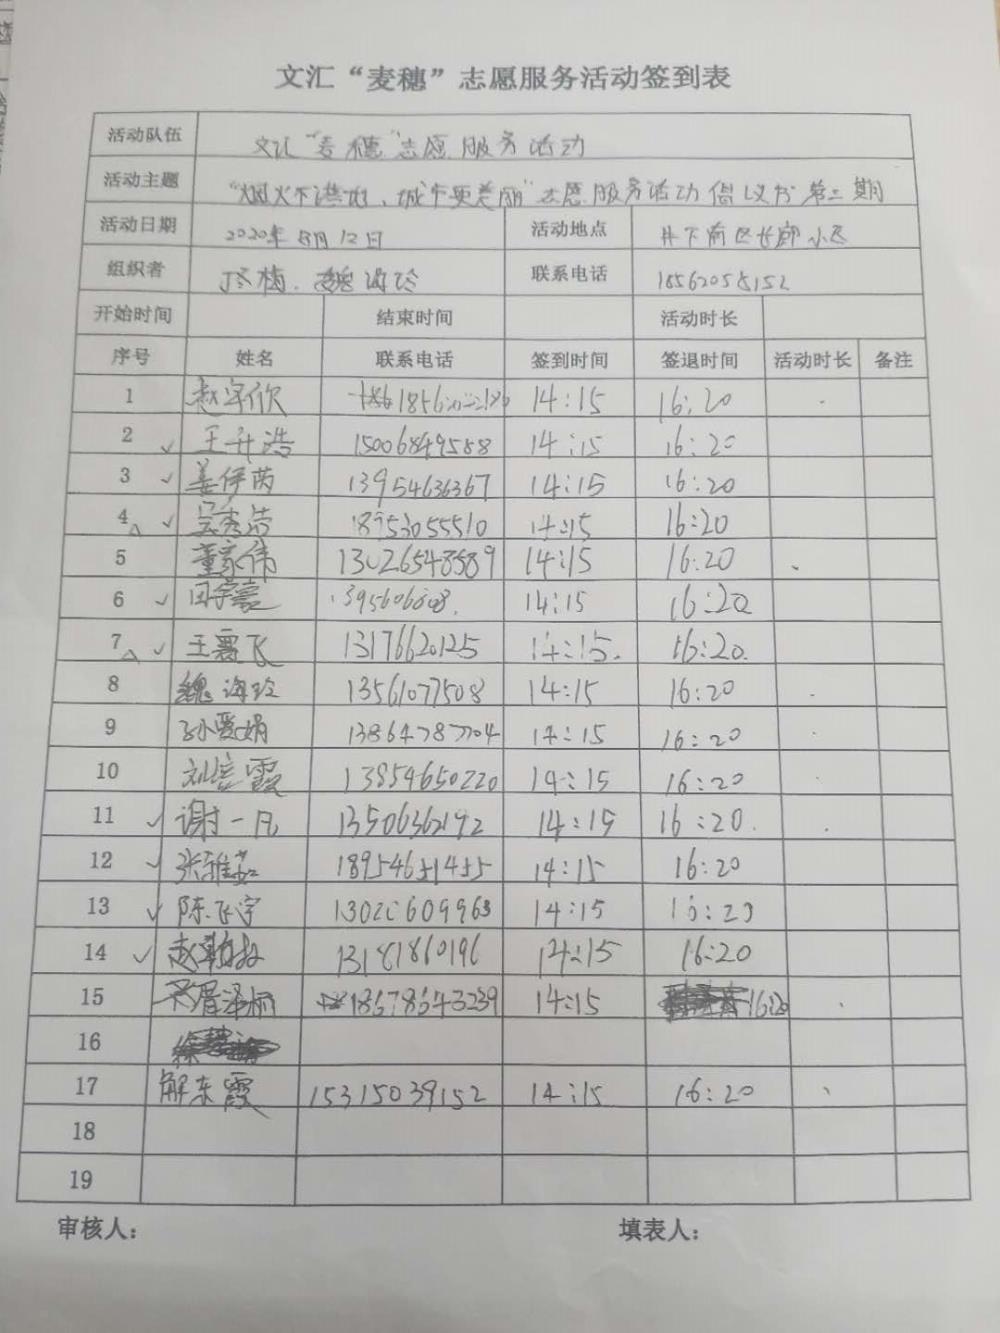 文汇“麦穗”志愿服务活动签到表
活动队伍 文汇“麦穗”志愿服务活动
活动主题 “烟火不进城、城市更美丽”志愿服务活动倡议书第二期
活动日期 2020年8月12日 活动地点 井下南区长廊小区
组织者 佟梅、魏海玲 联系电话 18562058152
开始时间 结束时间 活动时长
序号 姓名 联系电话 签到时间 签退时间 活动时长 备注
1 赵宇欣 14:15 16:20
2 ✓ 王升浩 15006849588 14:15 16:20
3 ✓ 姜伊芮 13954636367 14:15 16:20
4 △ ✓ 吴秀浩 18953055510 14:15 16:20
5 董家伟 13026548589 14:15 16:20
6 ✓ 田宇豪 14:15 16:20
7 △ ✓ 王震飞 13176620125 14:15. 16:20.
8 魏海玲 13561077508 14:15 16:20
9 孙爱娟 13864787704 14:15 16:20
10 刘信霞 13854650220 14:15 16:20
11 ✓ 谢一凡 13506362192 14:15 16:20.
12 ✓ 张雅茹 18954651455 14:15 16:20
13 ✓ 陈飞宇 14:15 16:20
14 ✓ 赵 13181860196 14:15 16:20
15 泽桐 18678643239 14:15 16:20
16
17 解东霞 15315039152 14:15 16:20
18
19
审核人： 填表人：